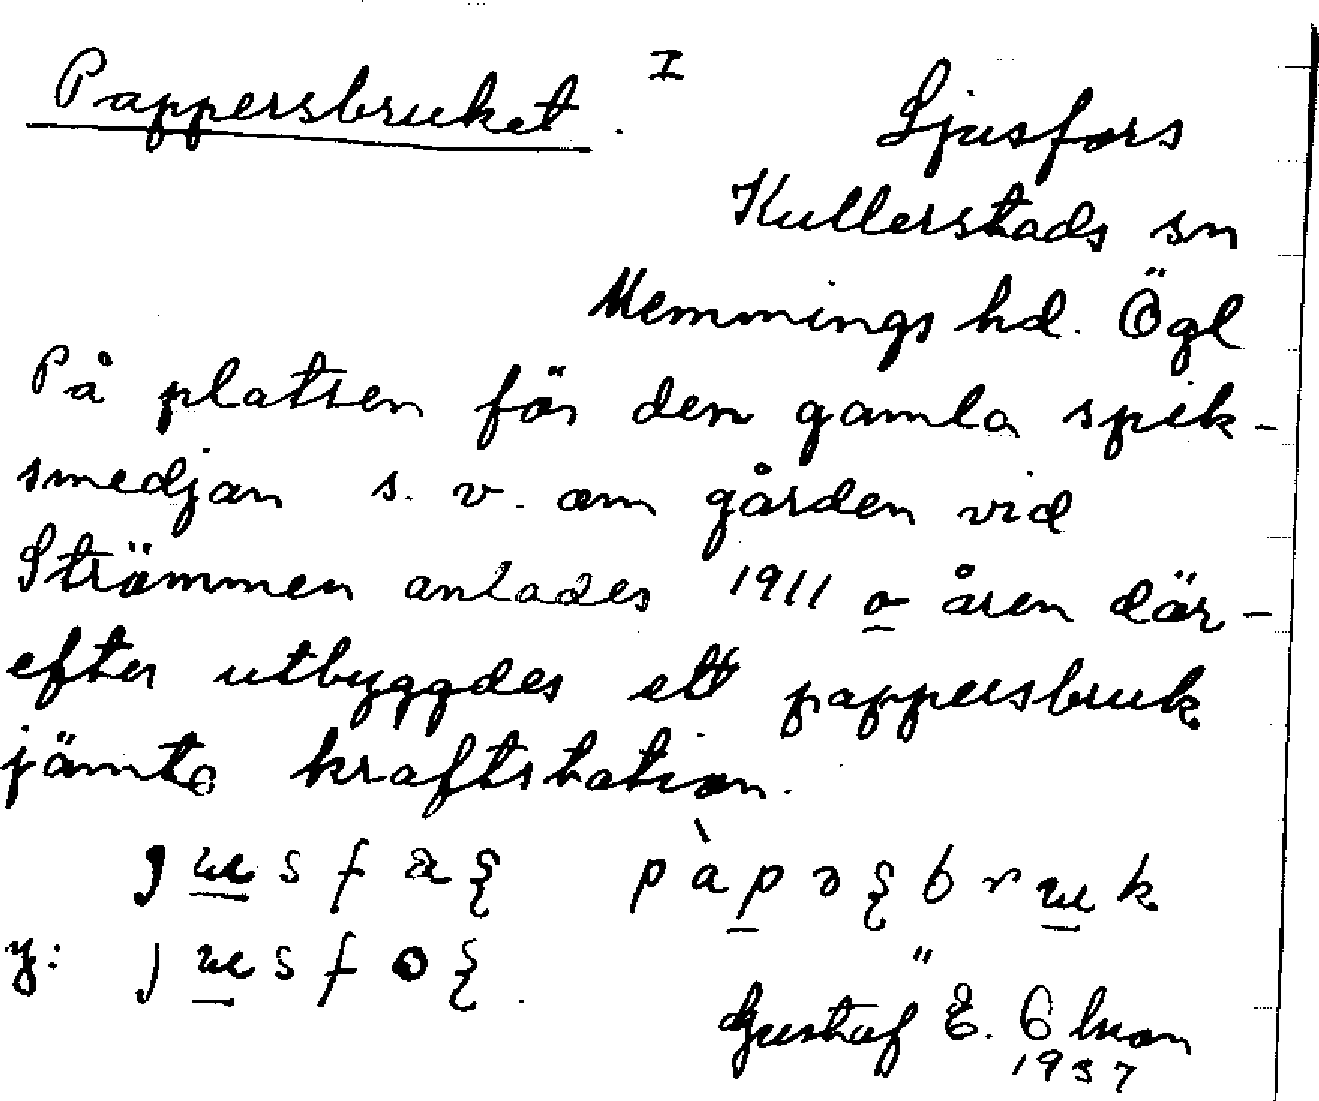 Pappersbruket. I
Ljusfors
Kullerstads sn
Memmings hd. Ögl
På platsen för den gamla spik-
smedjan s. v. om gården vid
Strömmen anlades 1911 o åren där-
efter utbyggdes ett pappersbruk
jämte kraftstation.
y:
Gustaf E.
1937